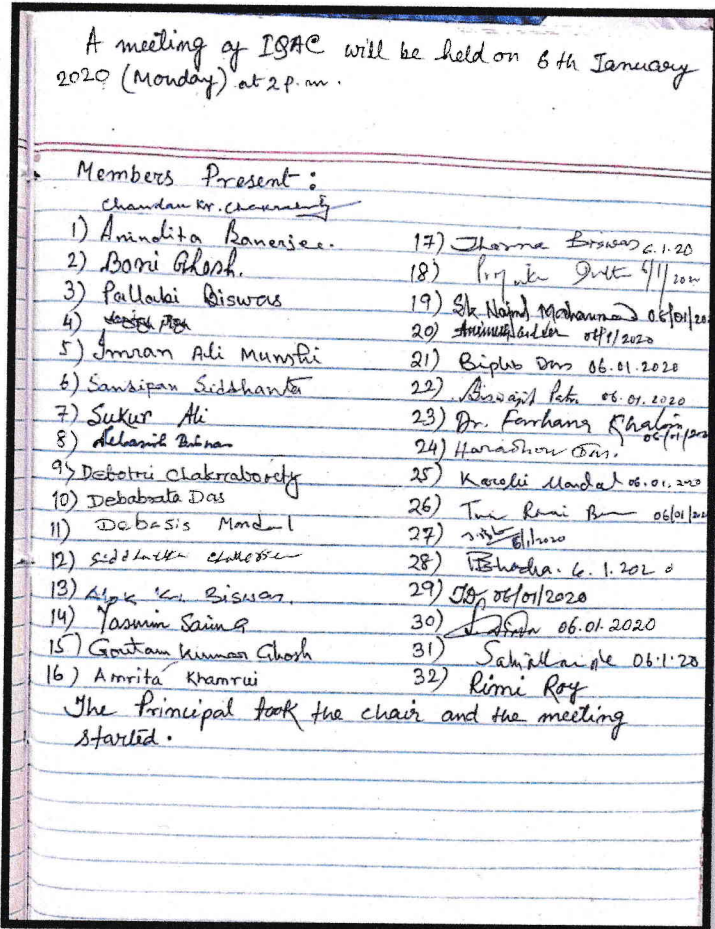 A meeting of IQAC will be held on 6th January
2020 (Monday) at 2 p.m.
Members Present :
Chandan Kr. Chakraborty
1) Anindita Banerjee.
2) Boni Ghosh.
3) Pallabi Biswas
4)
5) Imran Ali Munshi
6) Sansipan Siddhanta
7) Sukur Ali
8) Debasish Biswas
9) Debotri Chakraborty
10) Debabrata Das
11) Debasis Mondal
12) Siddhartha Chatterjee
13) Alok Kr. Biswas.
14) Yasmin Saima
15) Goutam Kumar Ghosh
16) Amrita Khamrui
17) Jharna Biswas 6.1.20
18) 6/1/2020
19) Sk Najmul Mohammad 06/01/20
20) 06/1/2020
21) Biplab Das 06.01.2020
22) Biswajit Patra 06.01.2020
23) Dr. Farhana Khatoon 06/01/2020
24) Haradhon Das.
25) Karabi Mandal 06.01.2020
26) 06/01/20
27) 6/1/2020
28) Bhadra. 6.1.2020
29) JD 06/01/2020
30) 06.01.2020
31) 06.1.20
32) Rimi Roy
The Principal took the chair and the meeting
started.